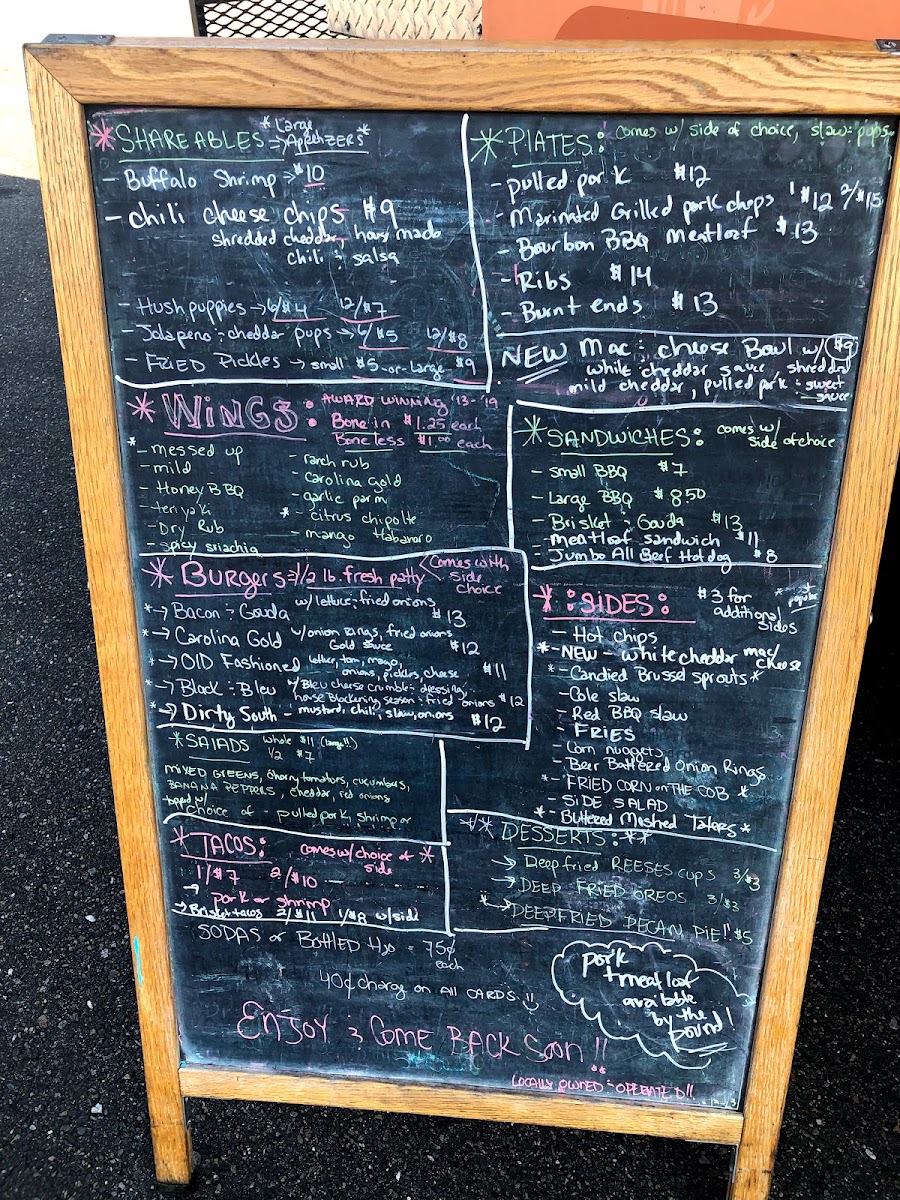 * SHAREABLES => *Large APPETIZERS*
- Buffalo Shrimp → $10
- chili cheese chips $9
shredded cheddar, house made
chili & salsa
- Hush puppies → 6/$4 12/$7
- Jalapeno & cheddar pups → 6/$5 12/$8
- FRIED Pickles → small $5 -or- Large $9
* WINGS
• AWARD WINNING '13-'19
• Bone in $1.25 each
Boneless $1.00 each
* - messed up
- mild
- Honey BBQ
- teriyaki
- Dry Rub
- spicy sriachia
- ranch rub
- carolina gold
- garlic parm
* - citrus chipolte
- mango Habanaro
* Burgers => 1/2 lb. fresh patty
Comes with side choice
* → Bacon & Gouda w/ lettuce & fried onions $13
* → Carolina Gold w/onion rings, fried onions
Gold sauce $12
* → OLD Fashioned lettuce, tom, mayo,
onions, pickles, cheese $11
* → Black & Bleu w/ Bleu cheese crumble & dressing
house Blackening season & fried onions $12
* → Dirty South - mustard, chili, slaw, onions $12
* SALADS whole $11 (large!!)
1/2 $7
MIXED GREENS, cherry tomatoes, cucumbers,
BANANA PEPPERS, cheddar, red onions
topped w/
choice of pulled pork, shrimp or
* TACOS: comes w/ choice of * side
1/$7 2/$10
→ pork or shrimp
→ Brisket tacos 2/$11 1/$8 w/side
* PLATES: comes w/ side of choice, slaw & pups
- pulled pork $12
- Marinated Grilled pork chops 1 $12 2/$15
- Bourbon BBQ Meatloaf $13
- Ribs $14
- Burnt ends $13
NEW Mac & cheese Bowl w/ $9
white cheddar sauce, shredded
mild cheddar, pulled pork & sweet
sauce
* SANDWICHES: comes w/ side of choice
- small BBQ $7
- Large BBQ $8.50
- Brisket & Gouda $13
- meatloaf sandwich $11
- Jumbo All Beef Hotdog $8
* :SIDES: $3 for additional sides
* popular
- Hot chips
* - NEW - white cheddar mac/cheese
* - Candied Brussel sprouts *
- Cole slaw
- Red BBQ slaw
- FRIES
- Corn nuggets
- Beer Battered Onion Rings
* - FRIED CORN on THE COB *
- SIDE SALAD
* - Buttered Mashed Taters *
** DESSERTS: **
→ Deep fried REESES cups 3/$3
→ DEEP FRIED OREOS 3/$3
* → DEEP FRIED PECAN PIE! $5
SODAS or Bottled H2O = 75¢
each
40¢ charge on All CARDS!!
pork
+ meatloaf
available
by the
pound!
ENJOY & COME BACK SOON!!
LOCALLY OWNED & OPERATED!!